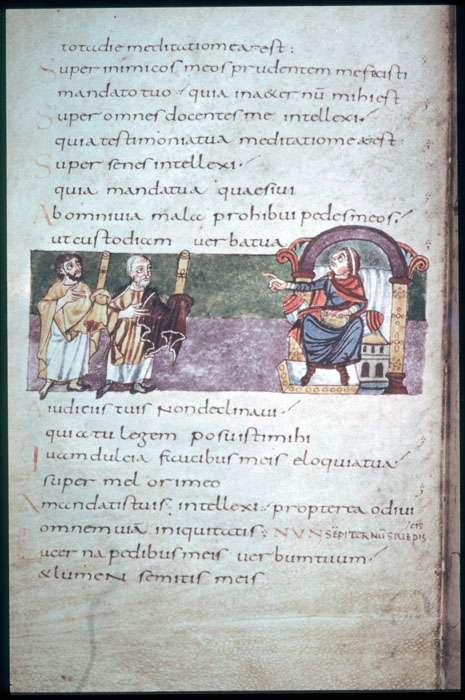 tota die meditatio mea est:
Super inimicos meos prudentem me fecisti
mandato tuo quia in aeternū mihi est
Super omnes docentes me intellexi
quia testimonia tua meditatio mea est
Super senes intellexi
quia mandata tua quaesivi
Ab omni via mala prohibui pedes meos
ut custodiam verba tua
iudiciis tuis non declinavi
quia tu legem posuisti mihi
quam dulcia faucibus meis eloquia tua
super mel ori meo
A mandatis tuis intellexi propterea odivi
omnem viam iniquitatis: NUN
Lucerna pedibus meis verbum tuum
& lumen semitis meis